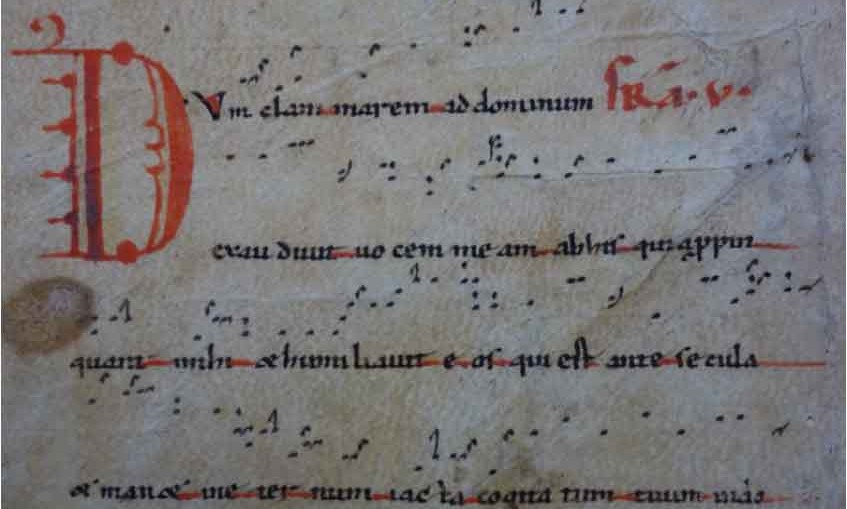 DVm clam marem ad dominum fRa. v.
exau diuit uo cem me am ab his qui appin
quant mihi & humiliauit e os qui est ante se cula
& man& in e ter num iac ta cogita tum tuum in do